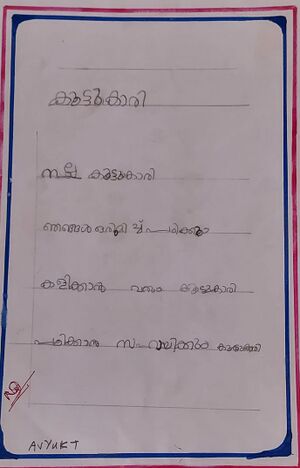 കൂട്ടുകാരി
നല്ല കൂട്ടുകാരി
ഞങ്ങൾ ഒരുമിച്ച് പഠിക്കും
കളിക്കാൻ വരും കൂട്ടുകാരി
പഠിക്കാൻ സഹായിക്കും
AVYUKT